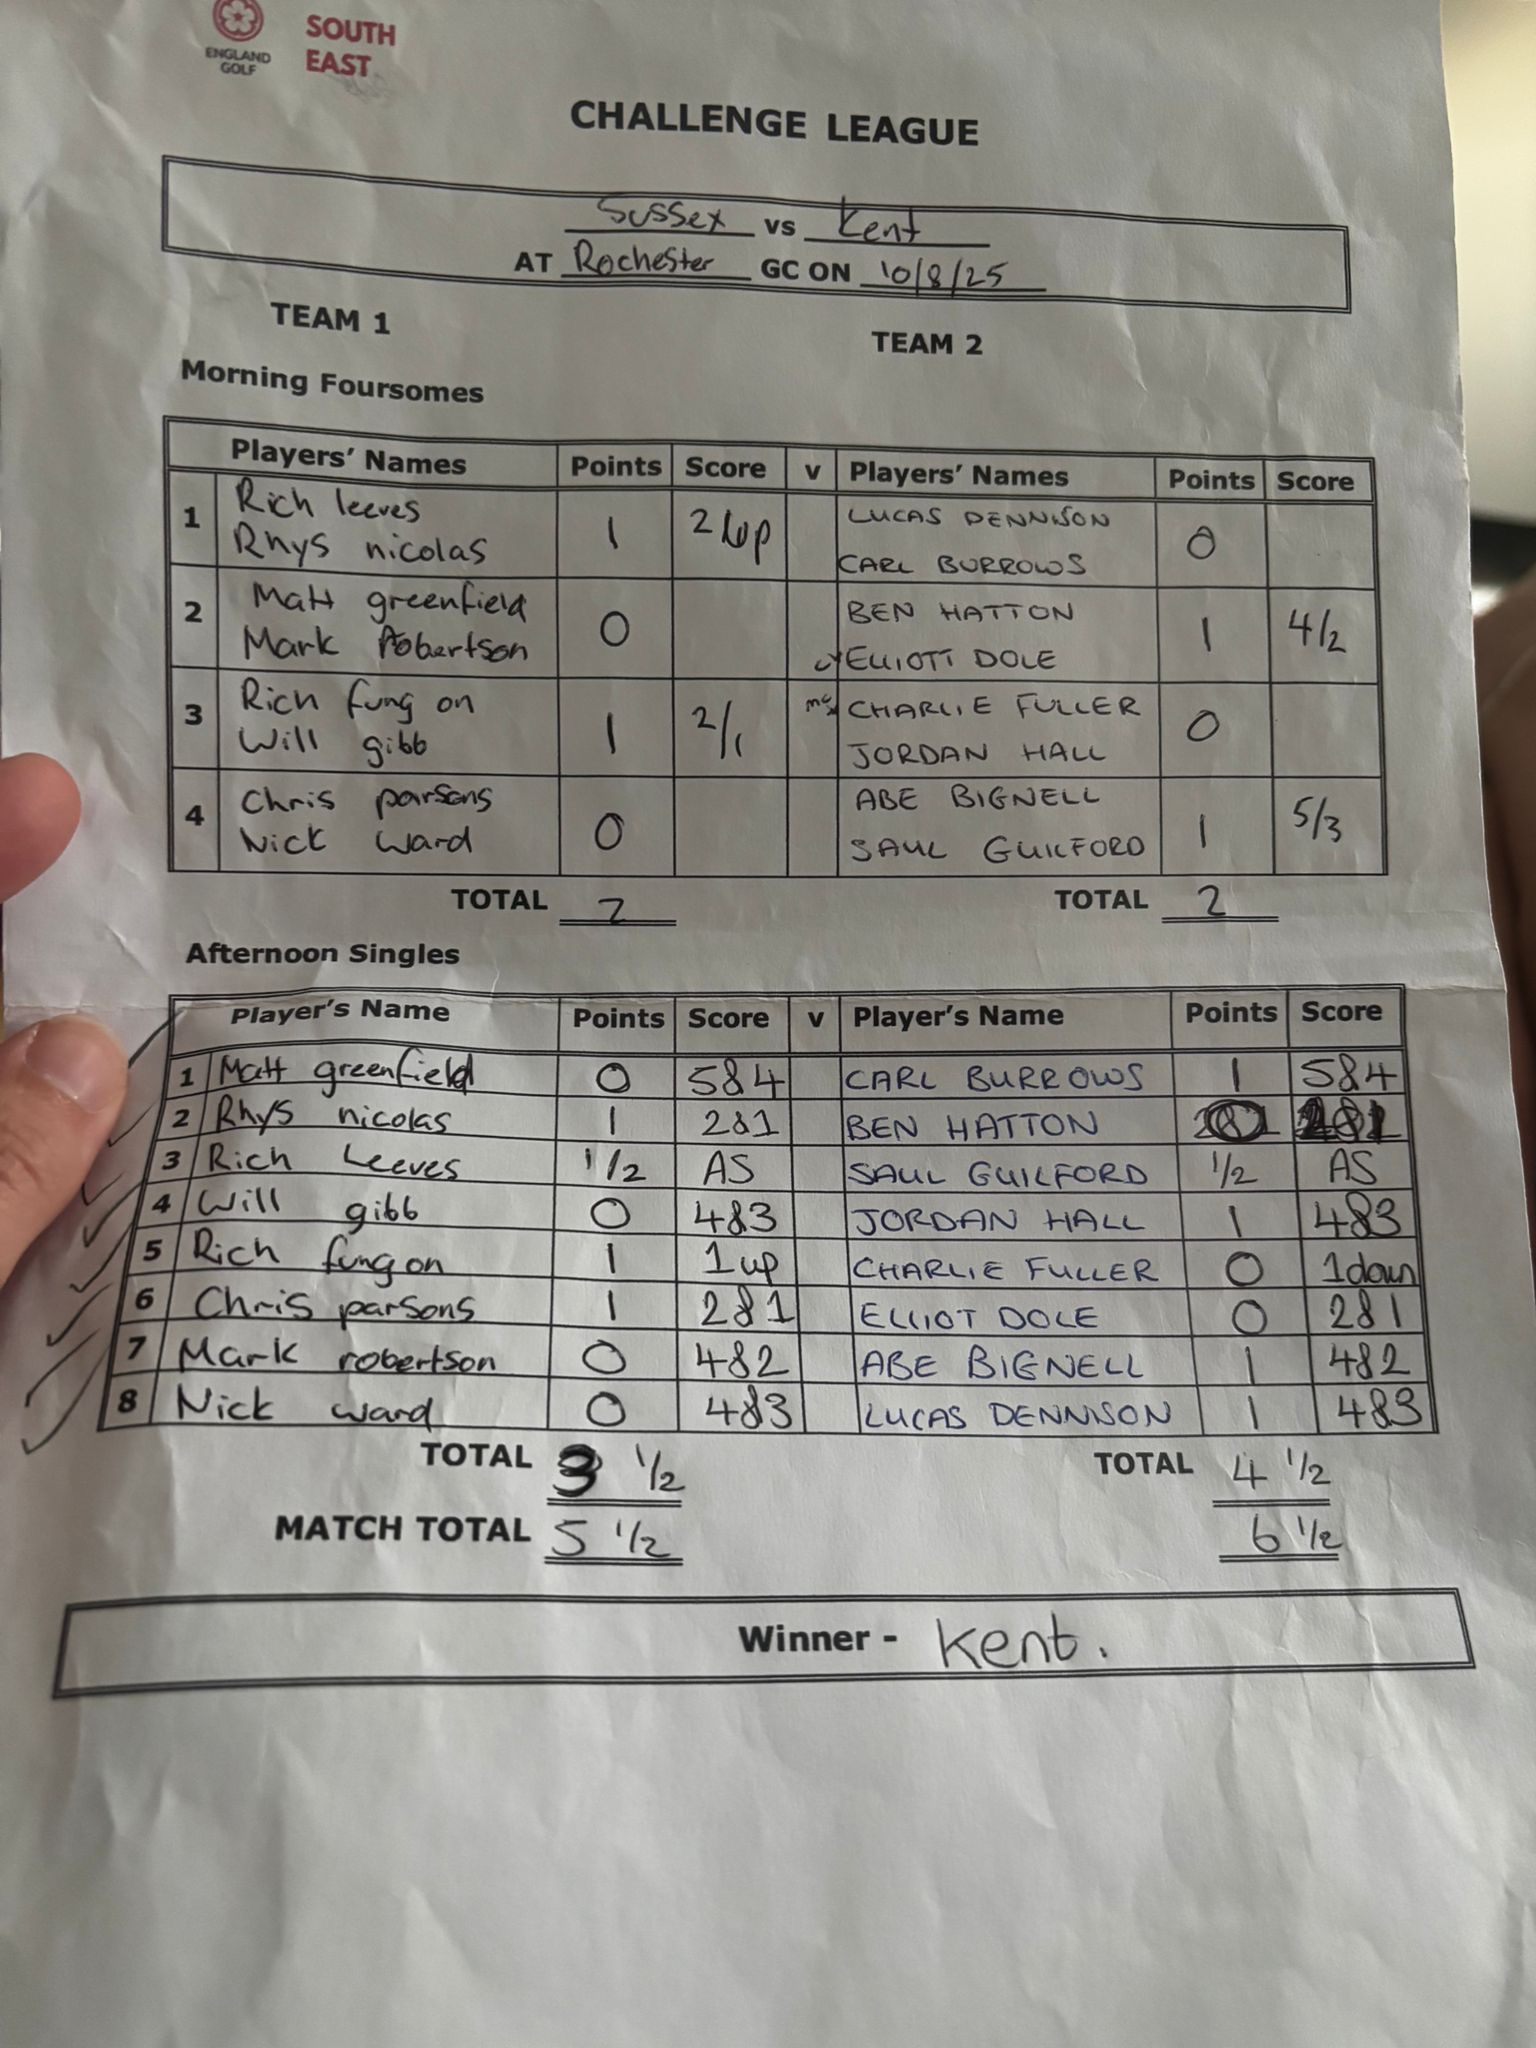 ENGLAND GOLF
SOUTH EAST
CHALLENGE LEAGUE
Sussex vs Kent
AT Rochester GC ON 10/8/25
TEAM 1 TEAM 2
Morning Foursomes
Players' Names Points Score v Players' Names Points Score
1 Rich leeves 1 2 up LUCAS DENNISON 0
Rhys nicolas CARL BURROWS
2 Matt greenfield 0 BEN HATTON 1 4/2
Mark Robertson ELLIOTT DOLE
3 Rich fung on 1 2/1 CHARLIE FULLER 0
Will gibb JORDAN HALL
4 Chris parsons 0 ABE BIGNELL 1 5/3
Nick ward SAUL GUILFORD
TOTAL 2 TOTAL 2
Afternoon Singles
Player's Name Points Score v Player's Name Points Score
1 Matt greenfield 0 5&4 CARL BURROWS 1 5&4
2 Rhys nicolas 1 2&1 BEN HATTON
3 Rich Leeves 1/2 AS SAUL GUILFORD 1/2 AS
4 Will gibb 0 4&3 JORDAN HALL 1 4&3
5 Rich fung on 1 1up CHARLIE FULLER 0 1down
6 Chris parsons 1 2&1 ELLIOT DOLE 0 2&1
7 Mark robertson 0 4&2 ABE BIGNELL 1 4&2
8 Nick ward 0 4&3 LUCAS DENNISON 1 4&3
TOTAL 3 1/2 TOTAL 4 1/2
MATCH TOTAL 5 1/2 6 1/2
Winner - Kent.